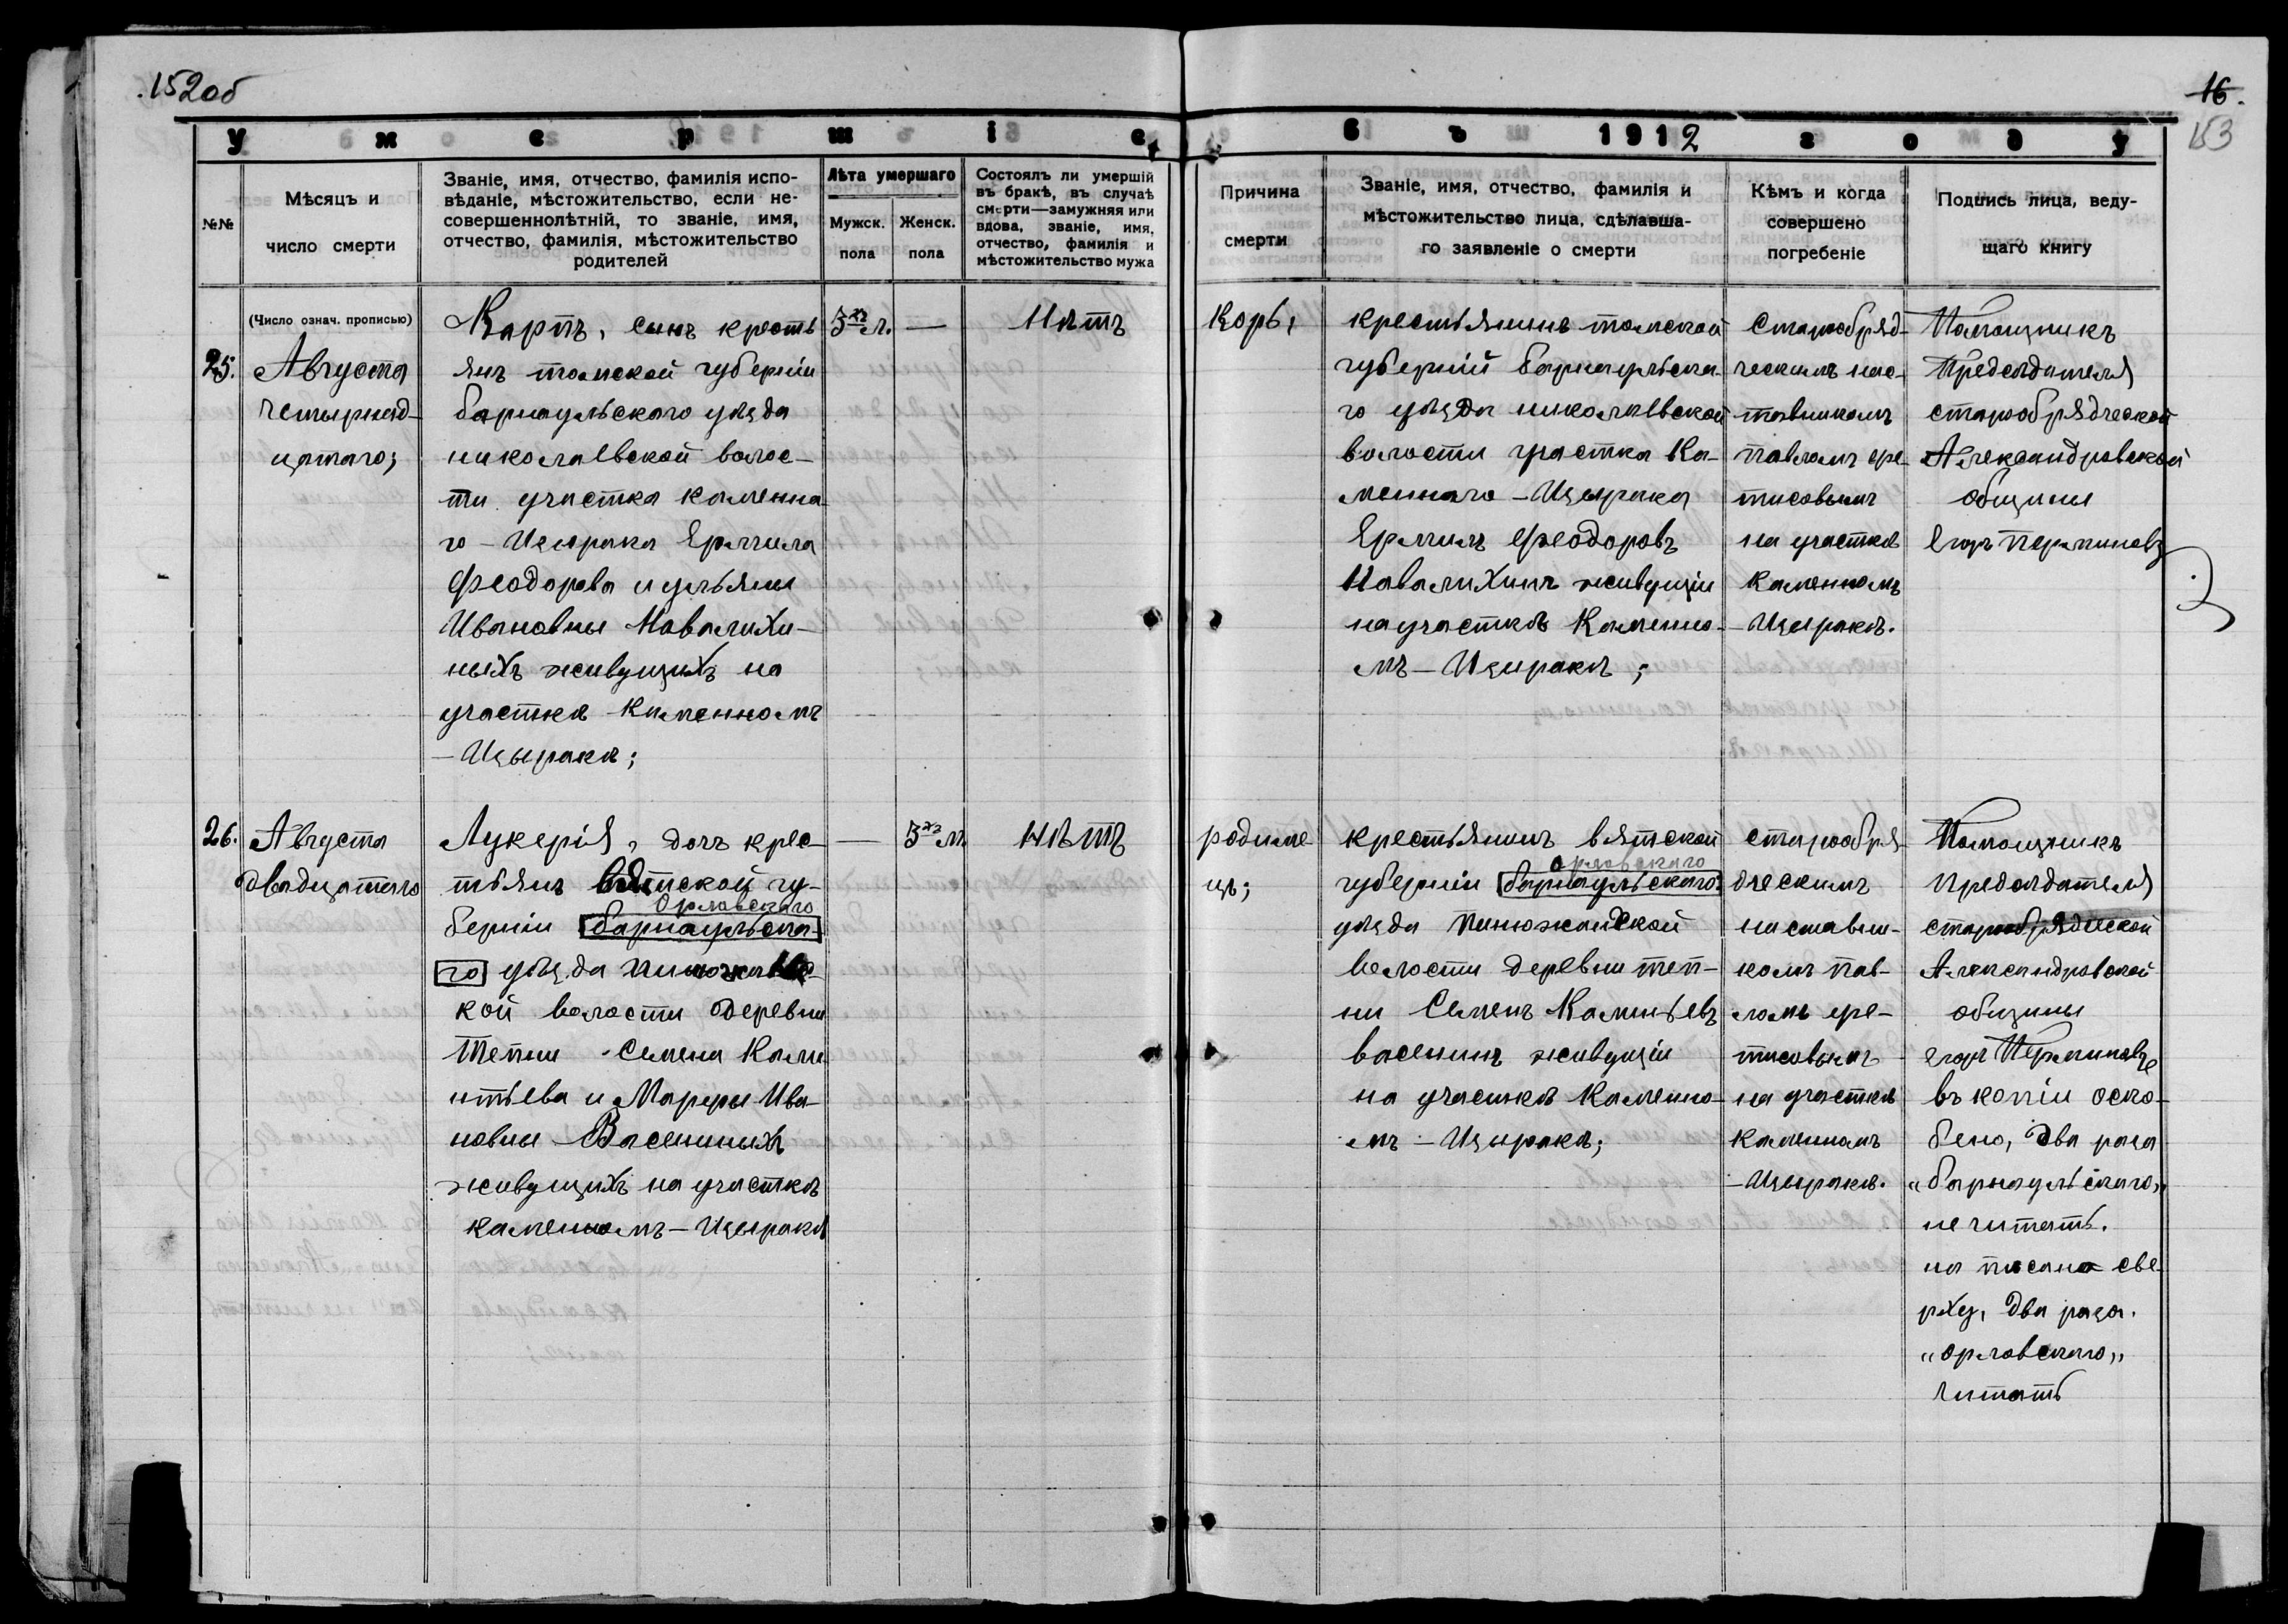 152об
16.
153
Умершіе
въ 1912 году
№№
Мѣсяцъ и
число смерти
Званіе, имя, отчество, фамилія испо-
вѣданіе, мѣстожительство, если не-
совершеннолѣтній, то званіе, имя,
отчество, фамилія, мѣстожительство
родителей
Лѣта умершаго
Мужск.
пола
Женск.
пола
Состоялъ ли умершій
въ бракѣ, въ случаѣ
смерти—замужняя или
вдова, званіе, имя,
отчество, фамилія и
мѣстожительство мужа
Причина
смерти
Званіе, имя, отчество, фамилія и
мѣстожительство лица, сдѣлавша-
го заявленіе о смерти
Кѣмъ и когда
совершено
погребеніе
Подпись лица, веду-
щаго книгу
(Число означ. прописью)
25.
Августа
четырнад-
цатаго;
Карпъ, сынъ кресть
янъ томской губерніи
барнаульского уѣзда
николаевской волос-
ти участка каменна
го - Изырака Ермила
феодорова и ульяны
Ивановны Навалихи-
ныхъ живущихъ на
участкѣ каменномъ
- Изыракѣ;
3хъ л.
—
Нѣтъ
Корь,
крестьянинъ томской
губерній барнаульска-
го уѣзда николаевской
волости участка Ка-
меннаго - Изырака
Ермилъ феодоровъ
Навалихинъ живущіи
на участкѣ Каменно-
мъ - Изыракѣ;
Старообряд-
ческимъ нас-
тавникомъ
павломъ фе-
тисовымъ
на участкѣ
Каменномъ
- Изыракѣ.
Помощникъ
Предсѣдателя
старообрядческой
Александровской
общины
Егоръ Перминовъ
26.
Августа
двадцатаго
Лукерія, дочь крес-
тьянъ вятской гу-
Орловского
берніи барнаульска-
го уѣзда
кой волости деревни
тепни Семена
нтьева и Марфы Ива-
новны Васениныхъ
живущихъ на участкѣ
каменномъ - Изыракѣ
—
3хъ м.
Нѣтъ
родиме
цъ;
крестьянинъ вятской
орловского
губерніи барнаульского
уѣзда пинюжанской
волости деревни теп-
ни Семенъ
васенинъ живущіи
на участкѣ Каменно-
мъ - Изыракѣ;
старообря-
дческимъ
наставни-
комъ пав-
ломъ фе-
тисовымъ
на участкѣ
каменномъ
- Изыракѣ.
Помощникъ
предсѣдателя
старообрядческой
Александровской
общины
егоръ Перминовъ
въ копіи оско-
блено, два раза
„барнаульского„
не читать.
на писано све-
рху, два раза.
„орловского„
читать